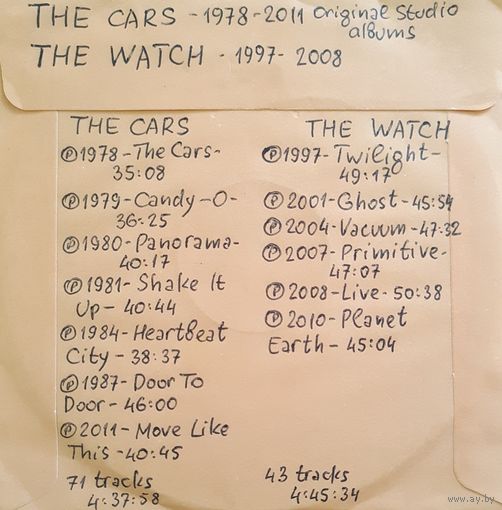 THE CARS - 1978-2011 Original Studio albums
THE WATCH - 1997- 2008
THE CARS
Ⓟ1978-The Cars-
35:08
Ⓟ1979-Candy-O-
36:25
Ⓟ1980-Panorama-
40:17
Ⓟ1981- Shake It
Up- 40:44
Ⓟ1984-HeartBeat
City- 38:37
Ⓟ1987-Door To
Door- 46:00
Ⓟ2011-Move Like
This-40:45
71 tracks
4:37:58
THE WATCH
Ⓟ1997-Twilight-
49:17
Ⓟ2001-Ghost-45:54
Ⓟ2004-Vacuum-47:32
Ⓟ2007-Primitive-
47:07
Ⓟ2008-Live-50:38
Ⓟ2010-Planet
Earth-45:04
43 tracks
4:45:34
www.ay.by